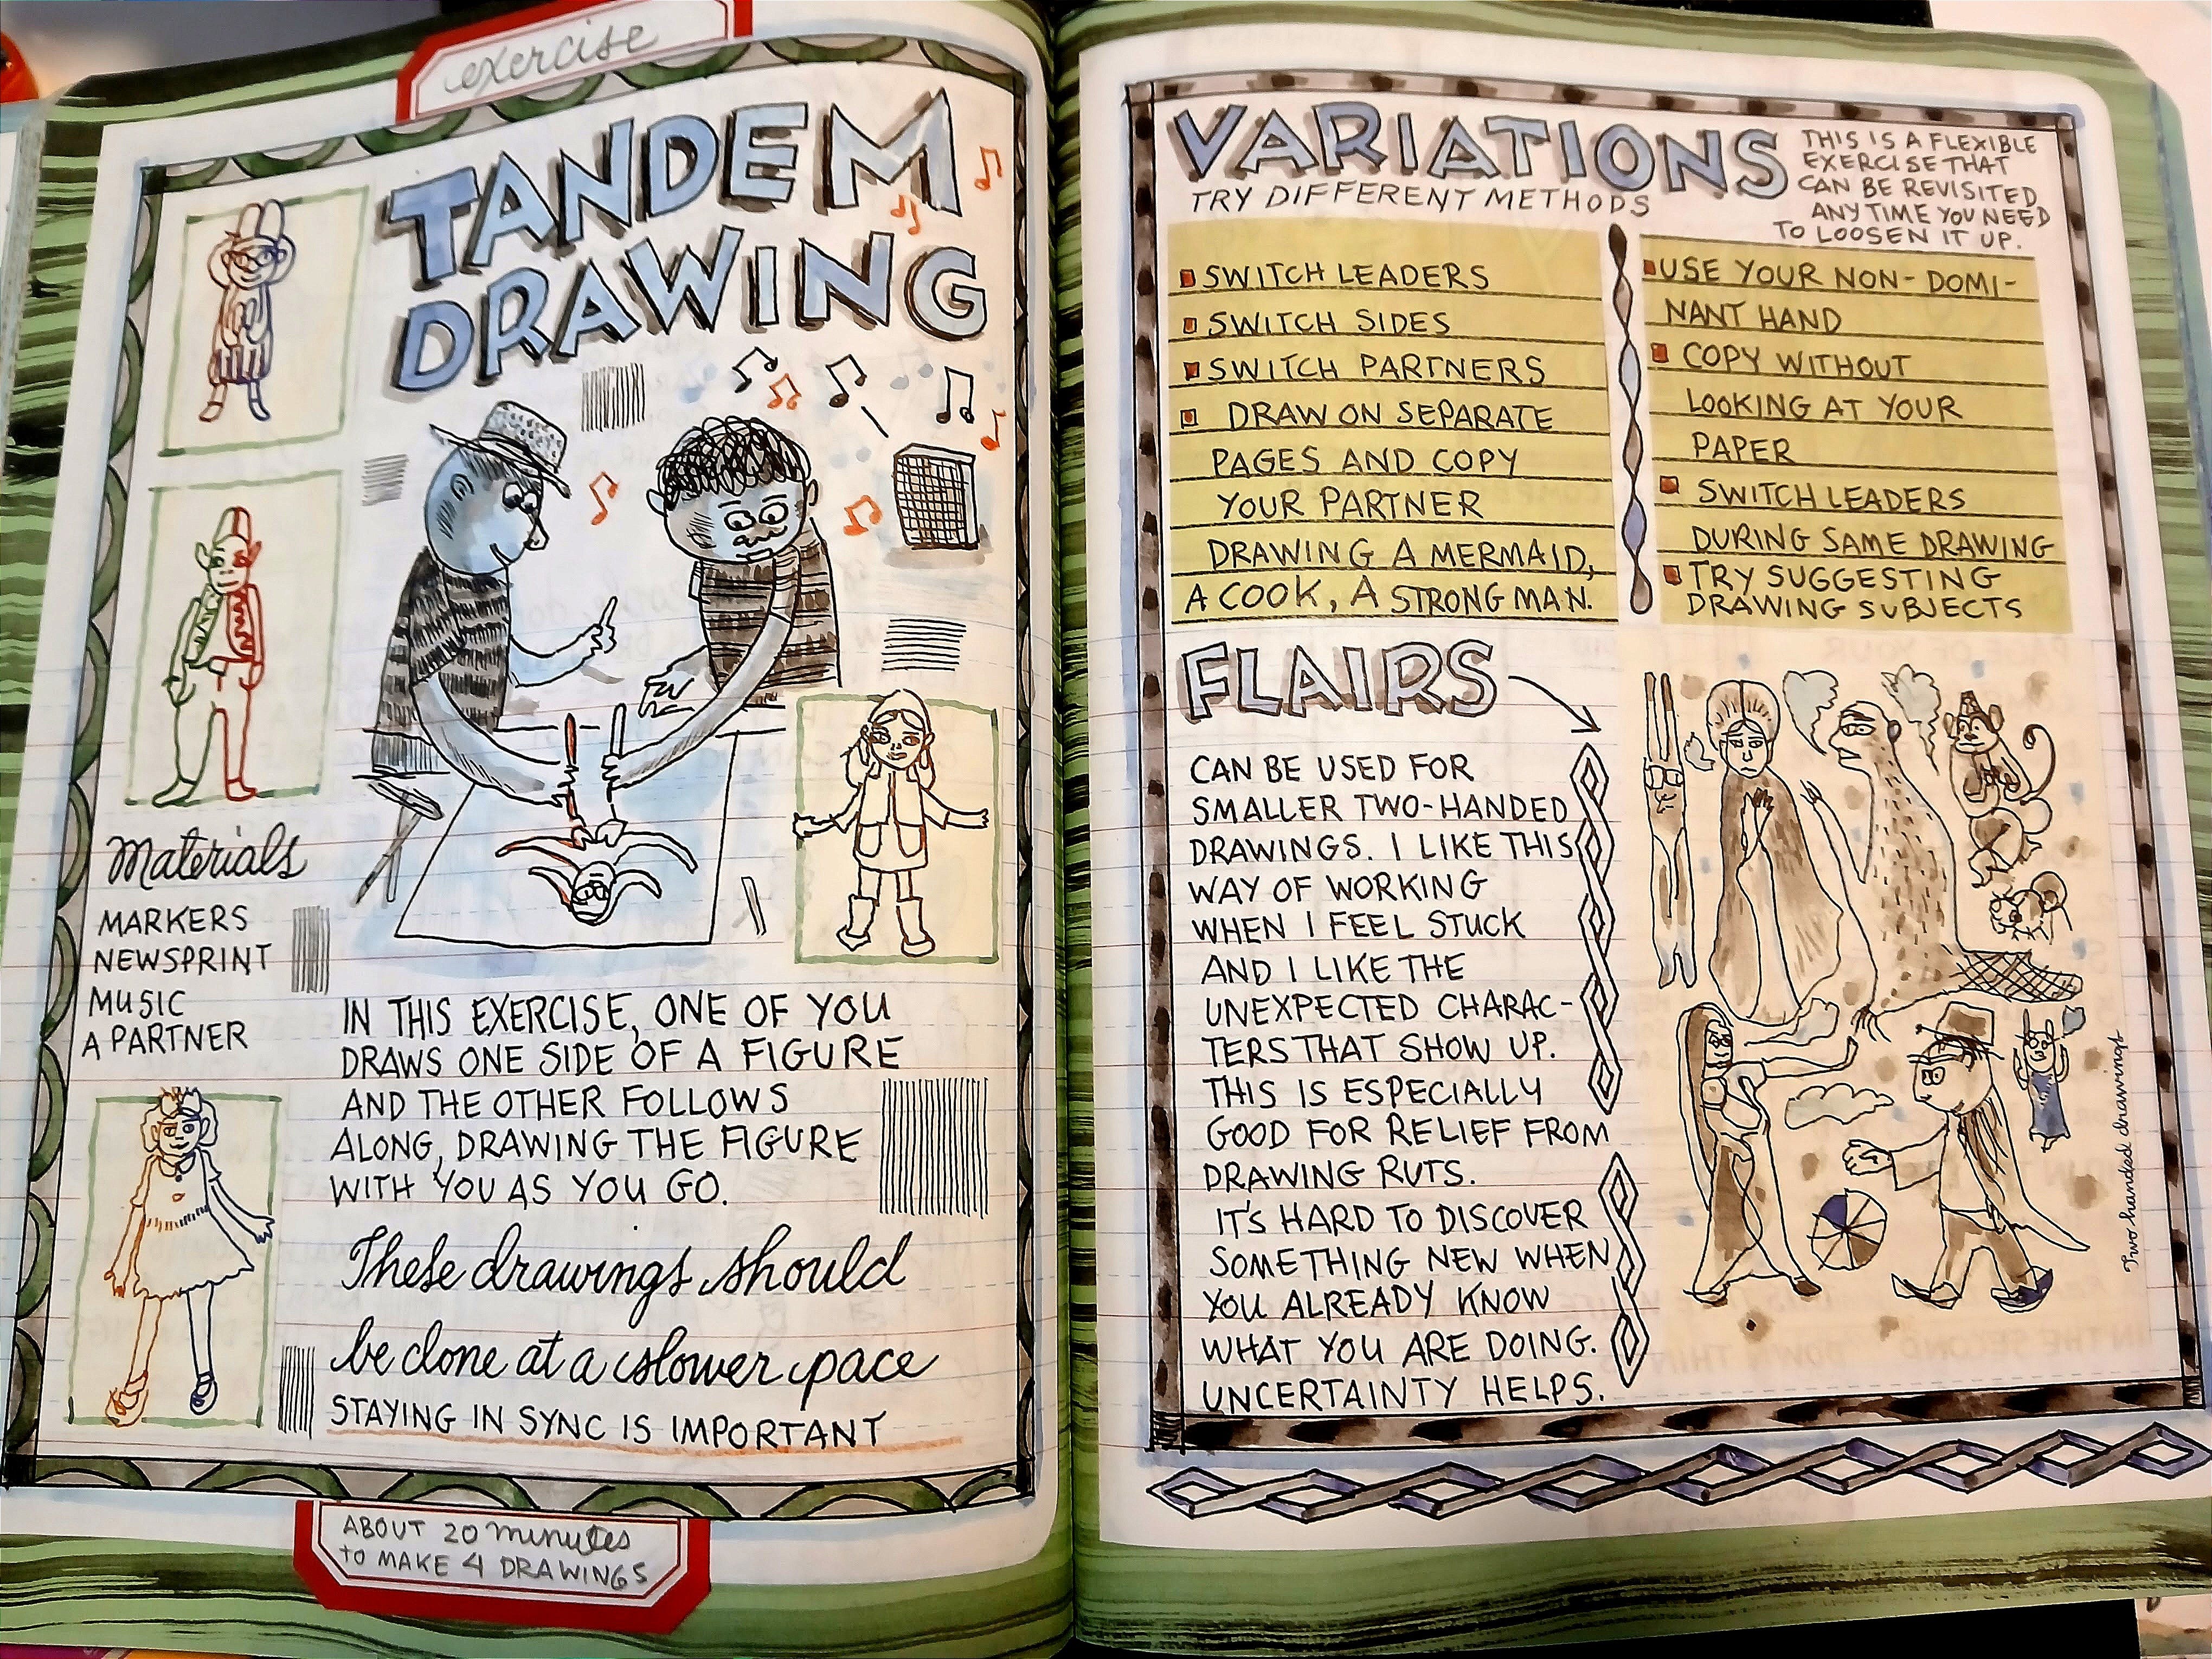 exercise
TANDEM
DRAWING
Materials
MARKERS
NEWSPRINT
MUSIC
A PARTNER
IN THIS EXERCISE, ONE OF YOU
DRAWS ONE SIDE OF A FIGURE
AND THE OTHER FOLLOWS
ALONG, DRAWING THE FIGURE
WITH YOU AS YOU GO.
These drawings should
be done at a slower pace
STAYING IN SYNC IS IMPORTANT
ABOUT 20 minutes
to MAKE 4 DRAWINGS
VARIATIONS
TRY DIFFERENT METHODS
THIS IS A FLEXIBLE
EXERCISE THAT
CAN BE REVISITED
ANY TIME YOU NEED
TO LOOSEN IT UP.
SWITCH LEADERS
SWITCH SIDES
SWITCH PARTNERS
DRAW ON SEPARATE
PAGES AND COPY
YOUR PARTNER
DRAWING A MERMAID,
A COOK, A STRONG MAN.
USE YOUR NON-DOMI-
NANT HAND
COPY WITHOUT
LOOKING AT YOUR
PAPER
SWITCH LEADERS
DURING SAME DRAWING
TRY SUGGESTING
DRAWING SUBJECTS
FLAIRS
CAN BE USED FOR
SMALLER TWO-HANDED
DRAWINGS. I LIKE THIS
WAY OF WORKING
WHEN I FEEL STUCK
AND I LIKE THE
UNEXPECTED CHARAC-
TERS THAT SHOW UP.
THIS IS ESPECIALLY
GOOD FOR RELIEF FROM
DRAWING RUTS.
IT'S HARD TO DISCOVER
SOMETHING NEW WHEN
YOU ALREADY KNOW
WHAT YOU ARE DOING.
UNCERTAINTY HELPS.
Two handed drawings